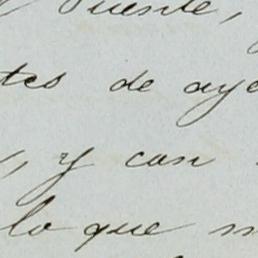 Puente,
tes de aye
, y con
lo que